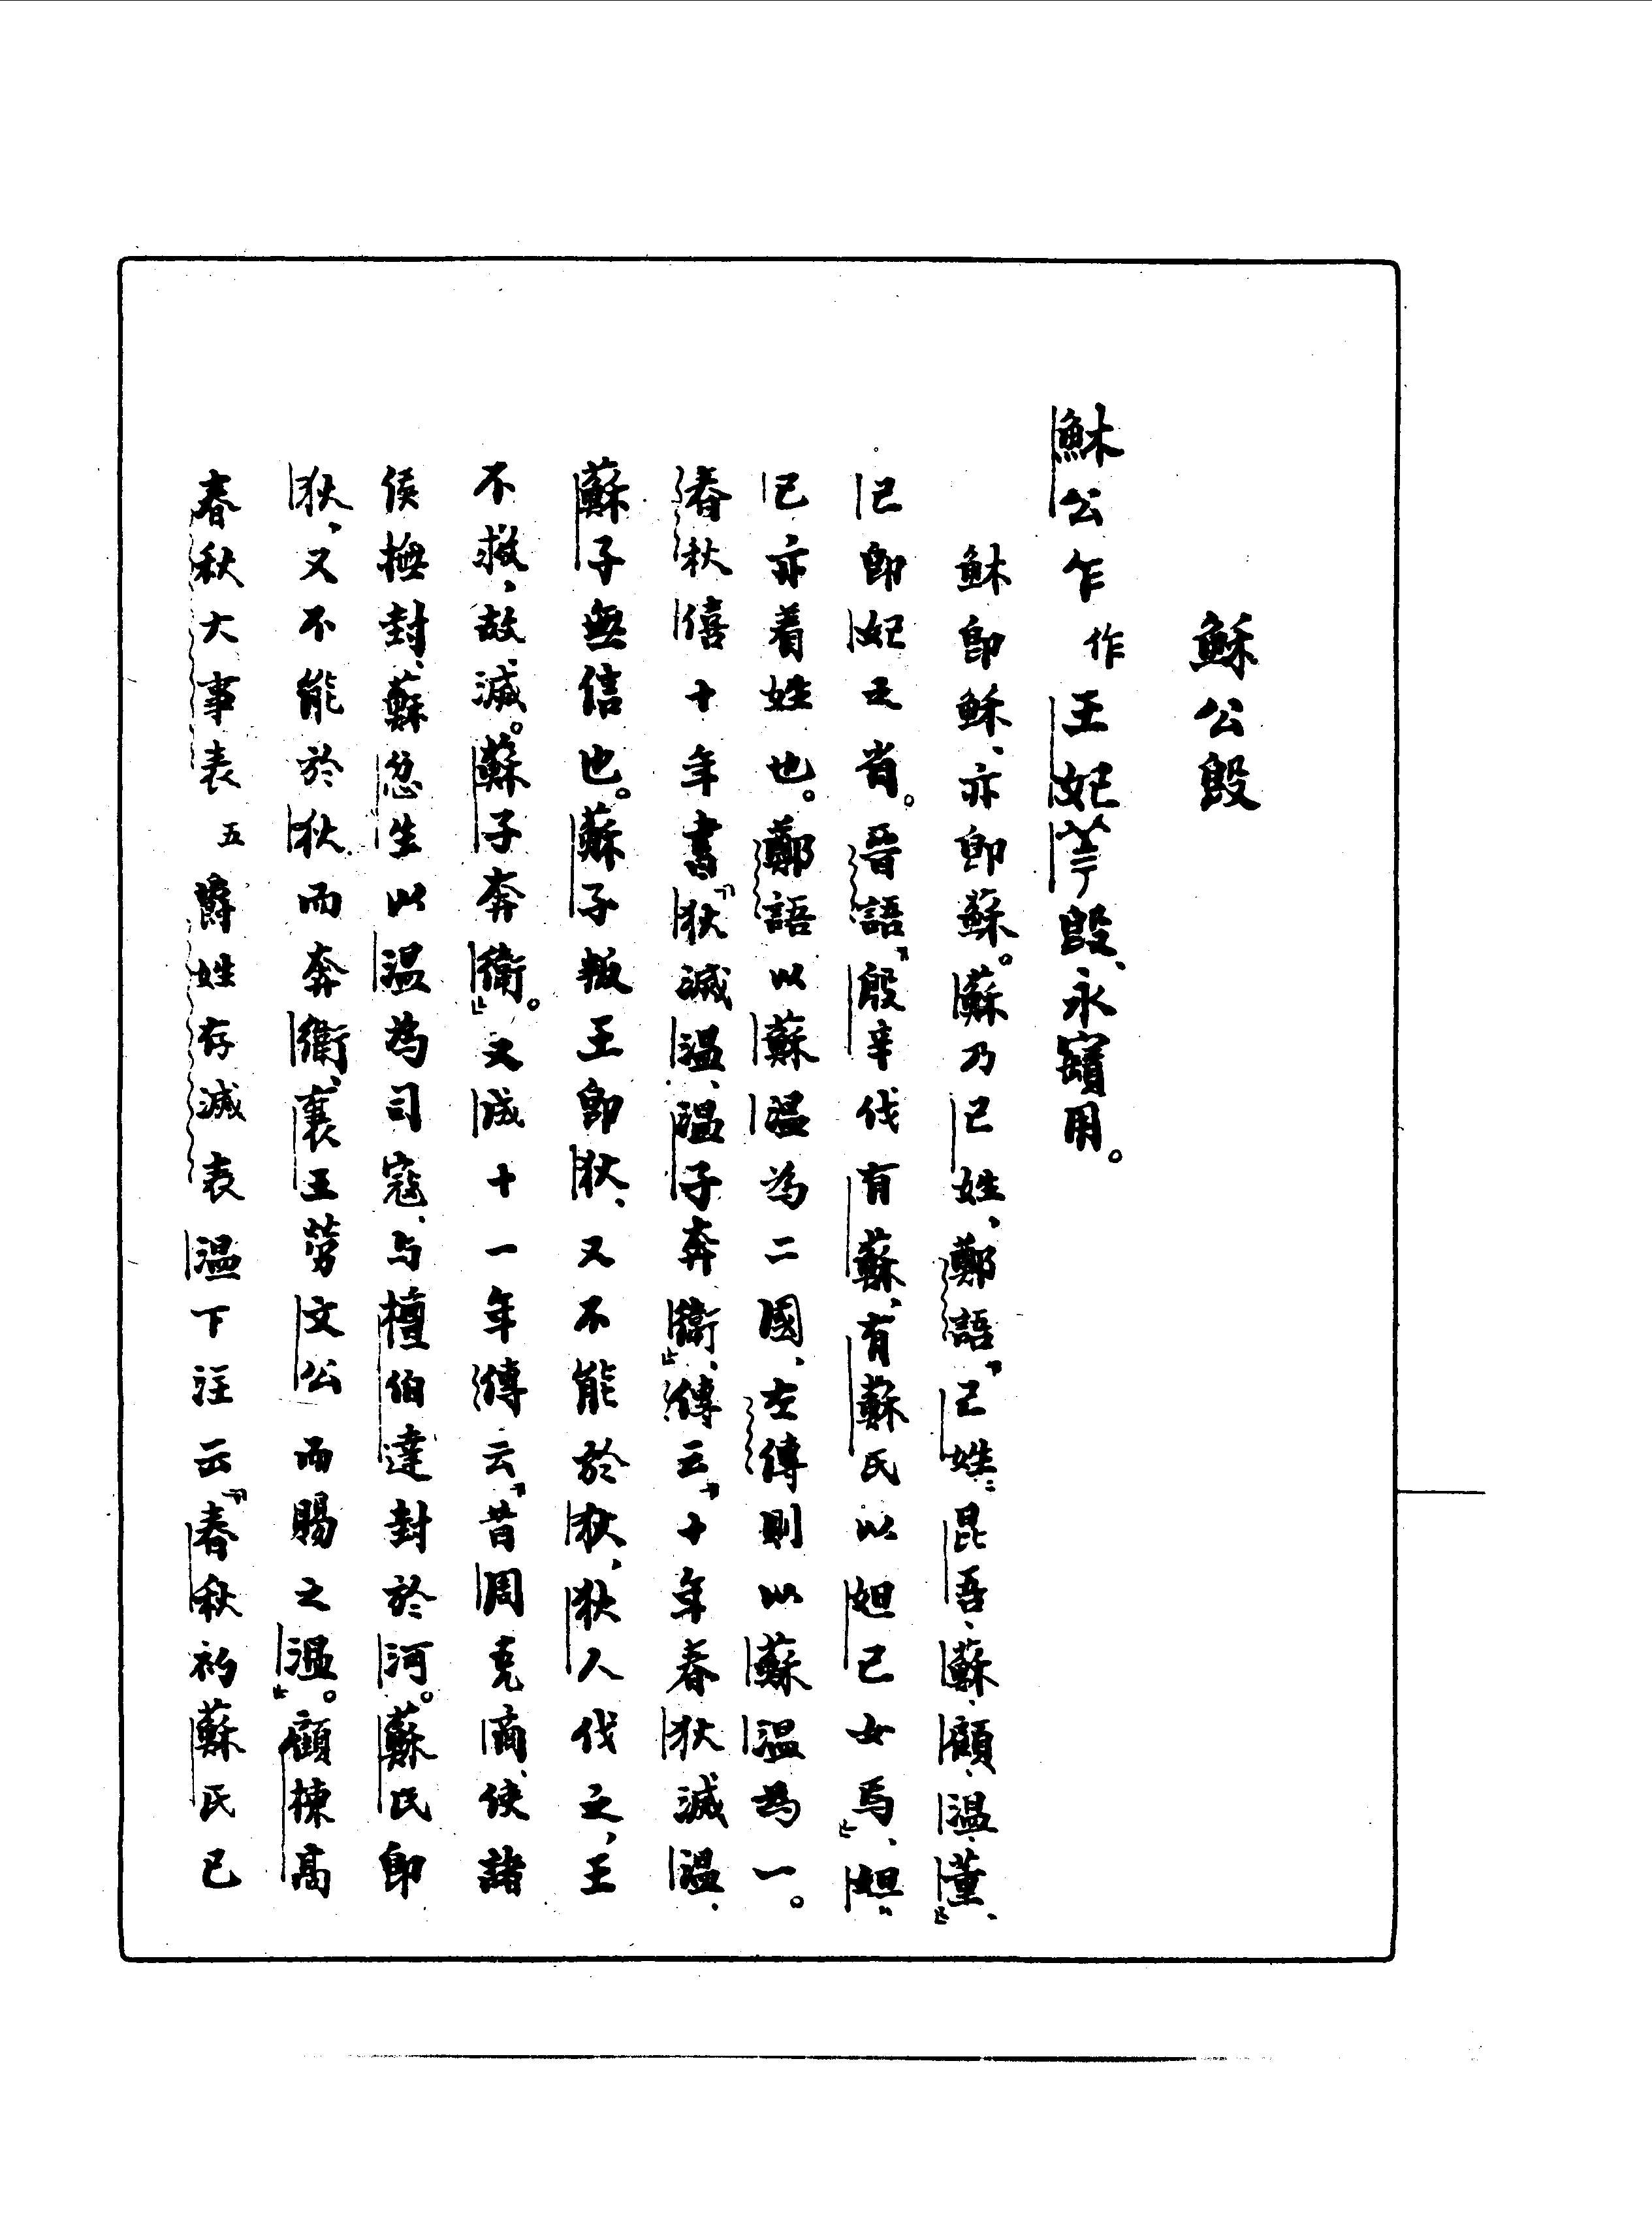 穌公𣪘
䱷公乍作王妃𦍌𣪘、永寶用。
䱷即穌、亦即蘇。蘇乃己姓、鄭語『己姓：昆吾、蘇、顧、温、董』、
己即妃之省。晉語『殷辛伐有蘇、有蘇氏以妲己女焉』、妲〃
己亦着姓也。鄭語以蘇温為二國、左傳則以蘇温為一。
春秋僖十年書『狄滅温、温子奔衛』、傳云『十年春狄滅温、
蘇子無信也。蘇子叛王即狄、又不能於狄、狄人伐之、王
不救、故滅。蘇子奔衛。』又成十一年傳云『昔周克商、使諸
侯撫封、蘇忿生以温為司寇、与檀伯達封於河。蘇氏即
狄、又不能於狄而奔衛、襄王勞文公而賜之温。』顧棟高
春秋大事表五爵姓存滅表温下注云『春秋初蘇氏已